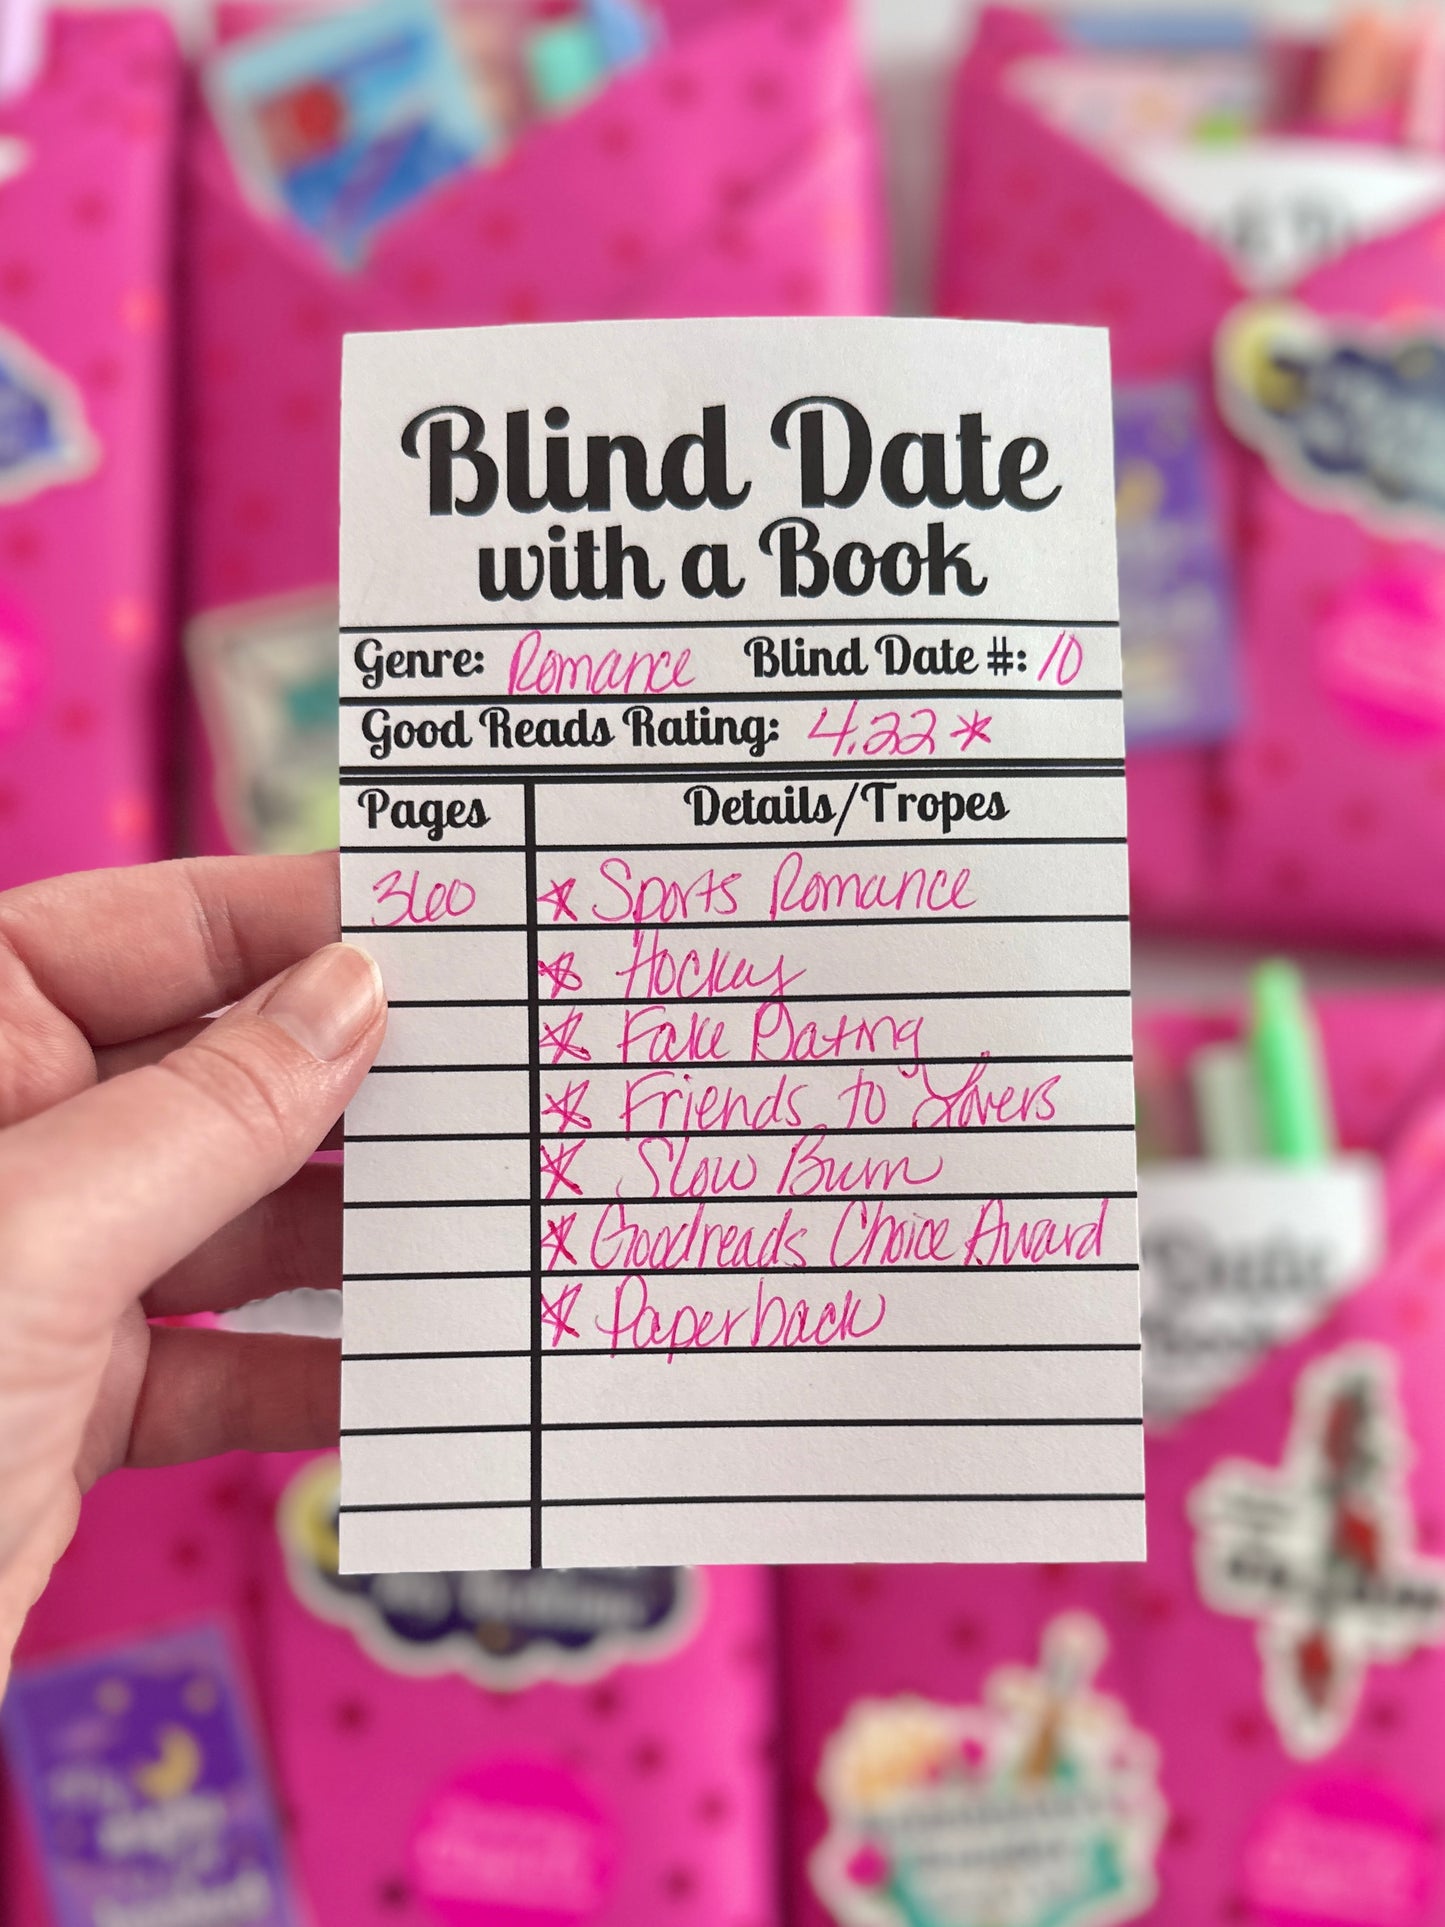 Blind Date
with a Book
Genre: Romance Blind Date #: 10
Good Reads Rating: 4.22 *
Pages Details/Tropes
360 * Sports Romance
* Hockey
* Fake Dating
* Friends to Lovers
* Slow Burn
* Goodreads Choice Award
* Paperback